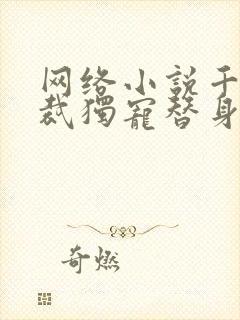 网络小说千
裁獨寵替身
奇燃